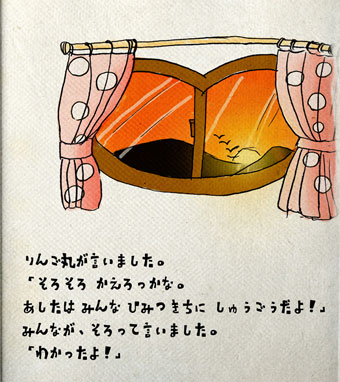 りんご丸が言いました。
「そろそろ かえろっかな。
あしたは みんな ひみつきちに しゅうごうだよ！」
みんなが、そろって言いました。
「わかったよ！」